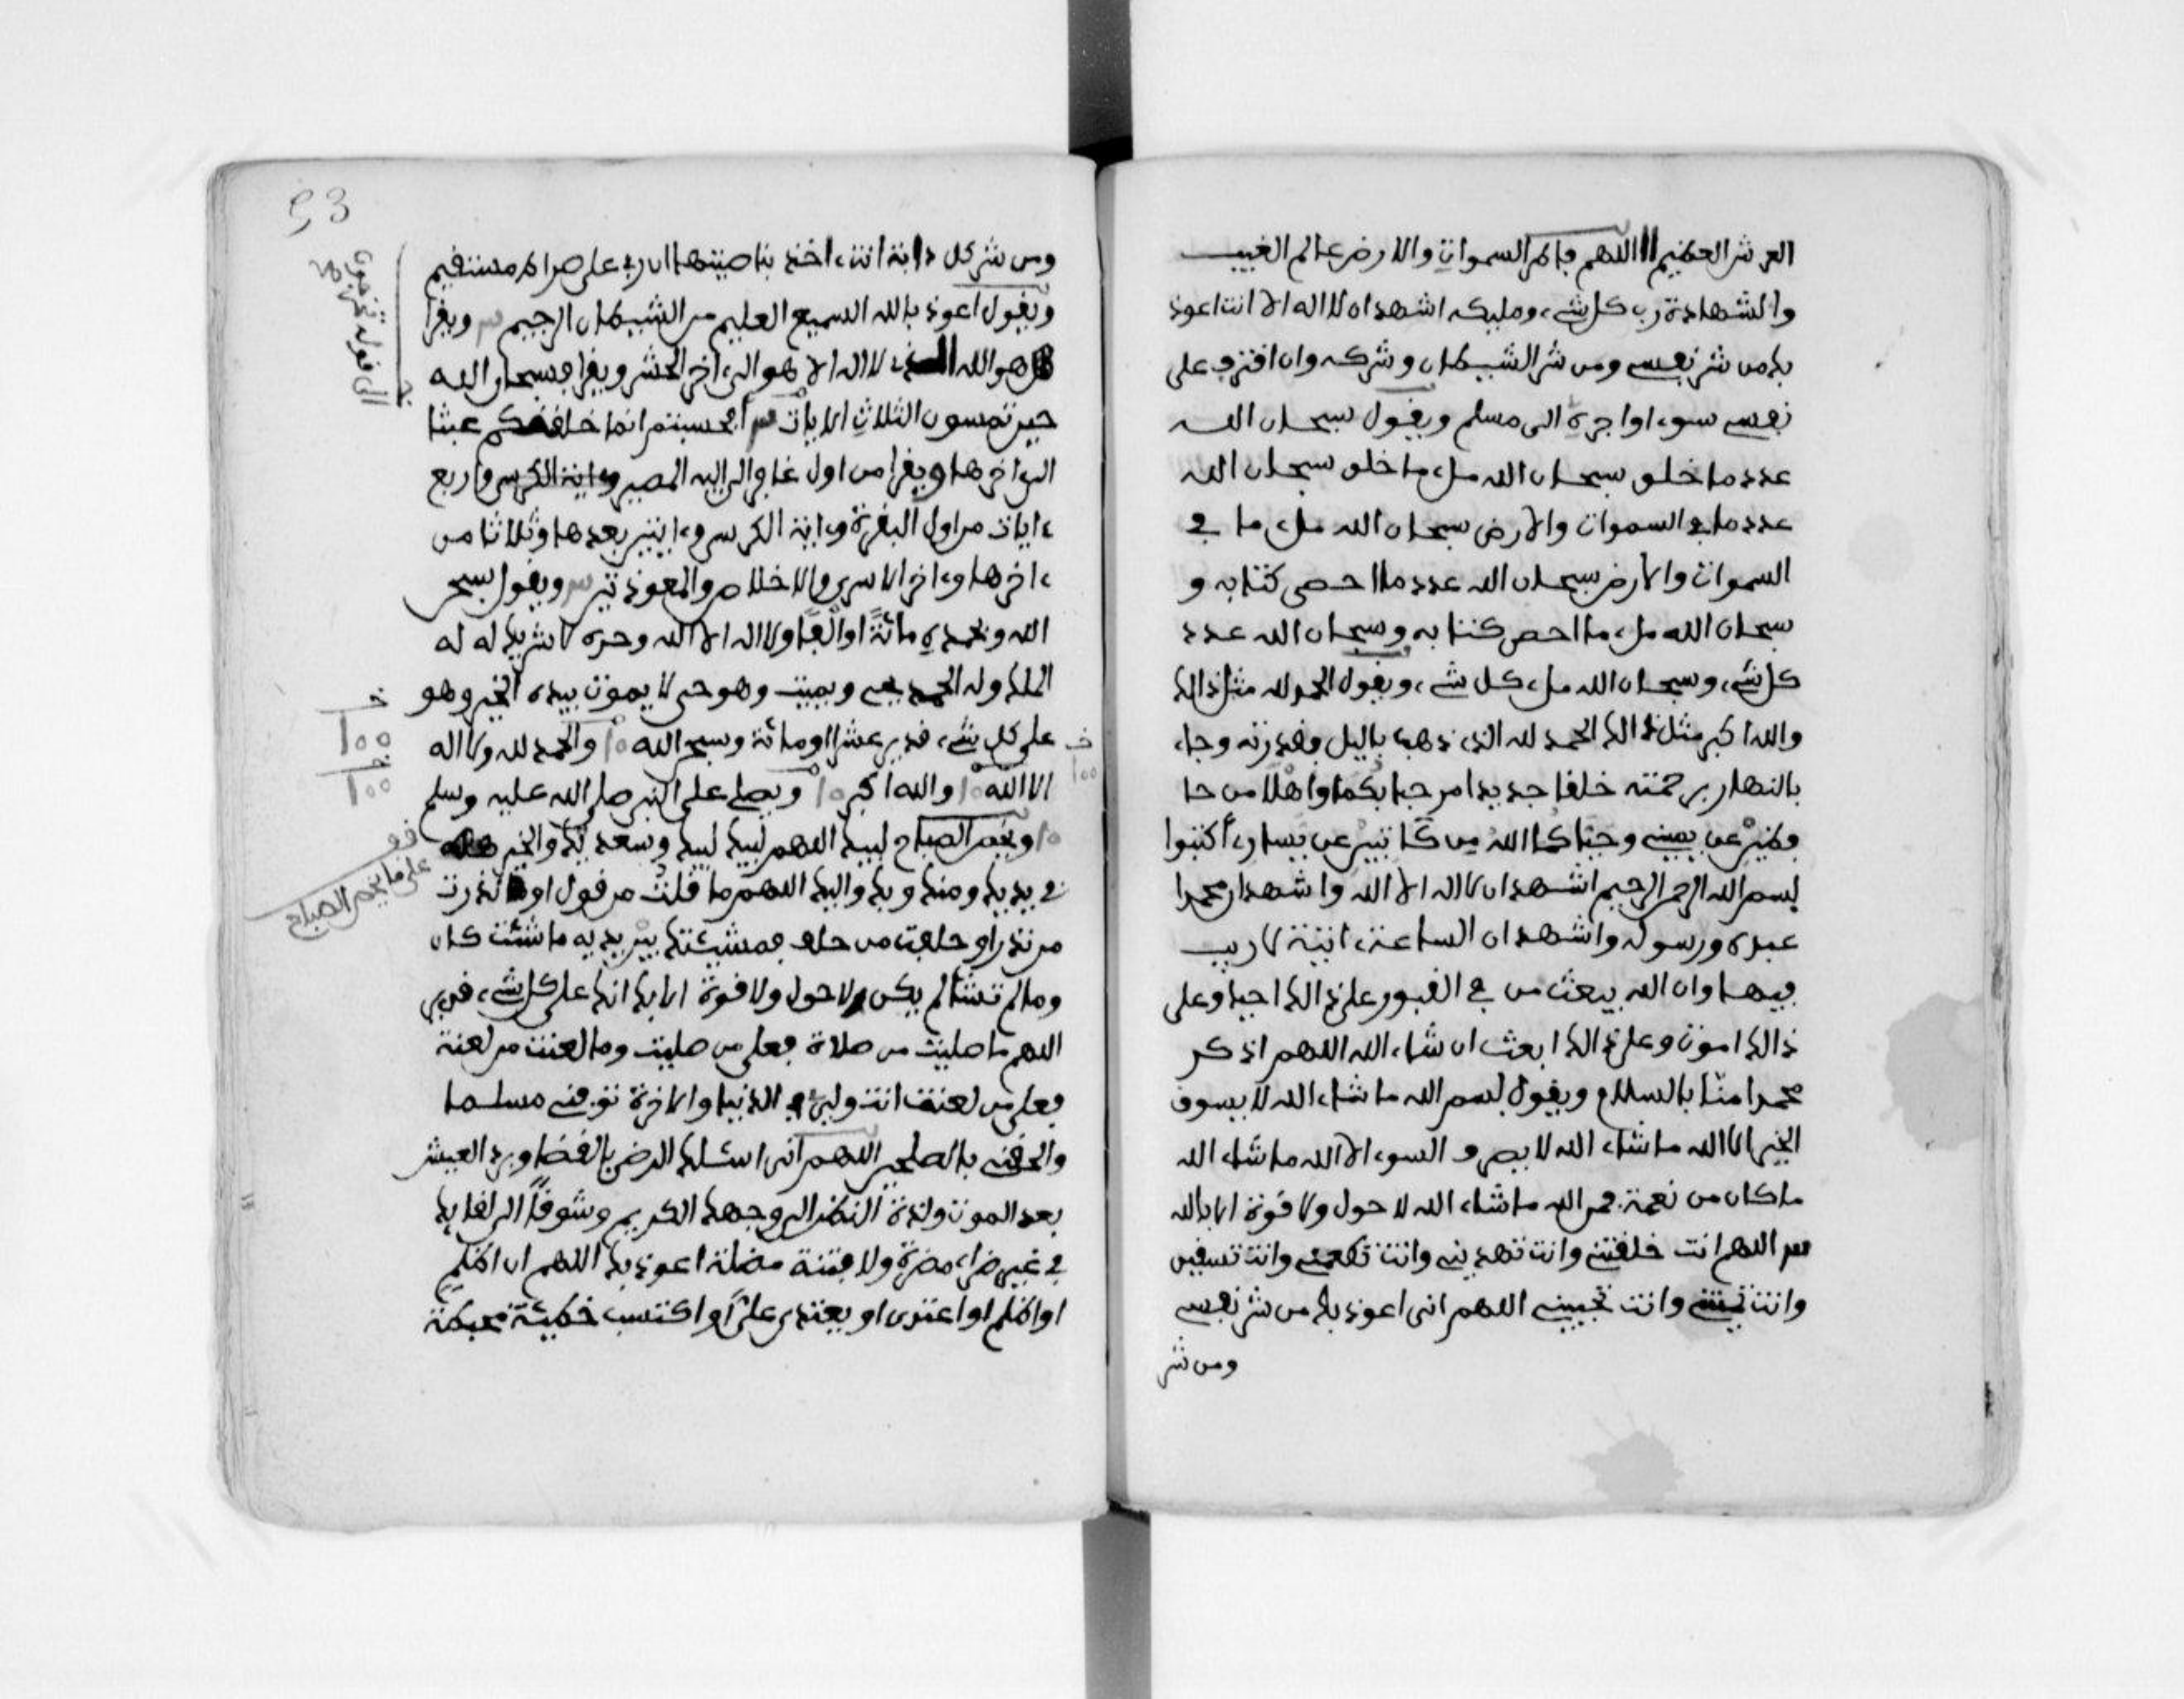 العرش العظيم اللهم فاطر السموات والارض عالم الغيب
والشهادة رب كل شيء ومليكه اشهد ان لا اله الا انت اعوذ
بك من شر نفسي ومن شر الشيطان وشركه وان اقترف على
نفسي سوءا او اجره الى مسلم ويقول سبحان الله
عدد ما خلق سبحان الله ملء ما خلق سبحان الله
عدد ما في السموات والارض سبحان الله ملء ما في
السموات والارض سبحان الله عدد ما احصى كتابه و
سبحان الله ملء ما احصى كتابه وسبحان الله عدد
كل شيء وسبحان الله ملء كل شيء ويقول الحمد لله مثل ذالك
والله اكبر مثل ذالك الحمد لله الذي ذهب باليل بقدرته وجاء
بالنهار برحمته خلقا جديدا مرحبا بكما واهلا من حا
فظين عن يميني وحياكما الله من كاتبين عن يساري اكتبوا
بسم الله الرحمن الرحيم اشهد ان لا اله الا الله واشهد ان محمدا
عبده ورسوله واشهد ان الساعة ءاتية لا ريب
فيها وان الله يبعث من في القبور على ذالك احيا وعلى
ذالك اموت وعلى ذالك ابعث ان شاء الله اللهم اذكر
محمدا منا بالسلام ويقول بسم الله ما شاء الله لا يسوق
الخير الا الله ما شاء الله لا يصرف السوء الا الله ما شاء الله
ما كان من نعمة فمن الله ما شاء الله لا حول ولا قوة الا بالله
اللهم انت خلقتني وانت تهديني وانت تطعمني وانت تسقين
وانت تميتني وانت تحييني اللهم اني اعوذ بك من شر نفسي
ومن شر
53
ومن شر كل دابة انت ءاخذ بناصيتها ان ربي على صراط مستقيم
ويقول اعوذ بالله السميع العليم من الشيطان الرجيم ويقرا
هو الله الذي لا اله الا هو الى ءاخر الحشر ويقرا فسبحان الله
حين تمسون الثلاث الايات افحسبتم انما خلقنكم عبثا
الى ءاخرها ويقرا من اول غافر الى اليه المصير وءاية الكرسي واربع
ءايات من اول البقرة وءاية الكرسي وءايتين بعدها وثلاثا من
ءاخرها وءاخر الاسرى والاخلاص والمعوذتين ويقول سبحن
الله وبحمده مائة او الفا ولا اله الا الله وحده لا شريك له له
الملك وله الحمد يحيي ويميت وهو حي لا يموت بيده الخير وهو
على كل شيء قدير عشرا او مائة وسبحن الله 10 والحمد لله ولا اله
الا الله 10 والله اكبر 10 ويصلي على النبي صلى الله عليه وسلم
10 ويخص الصباح لبيك اللهم لبيك لبيك وسعديك والخير
في يديك ومنك وبك واليك اللهم ما قلت من قول او نذرت
من نذر او حلفت من حلف فمشيئتك بين يديه ما شئت كان
وما لم تشا لم يكن ولا حول ولا قوة الا بك انك على كل شيء قدير
اللهم ما صليت من صلاة فعلى من صليت وما لعنت من لعنة
فعلى من لعنت انت وليي في الدنيا والاخرة توفني مسلما
والحقني بالصلحين اللهم اني اسئلك الرضى بالقضا وبرد العيش
بعد الموت ولذة النظر الى وجهك الكريم وشوقا الى لقايك
في غير ضراء مضرة ولا فتنة مضلة اعوذ بك اللهم ان اظلم
او اظلم او اعتدى او يعتدى علي او اكتسب خطيئة محبطة
الى قوله تخرجون
100
100
100
على ما يخص الصباح